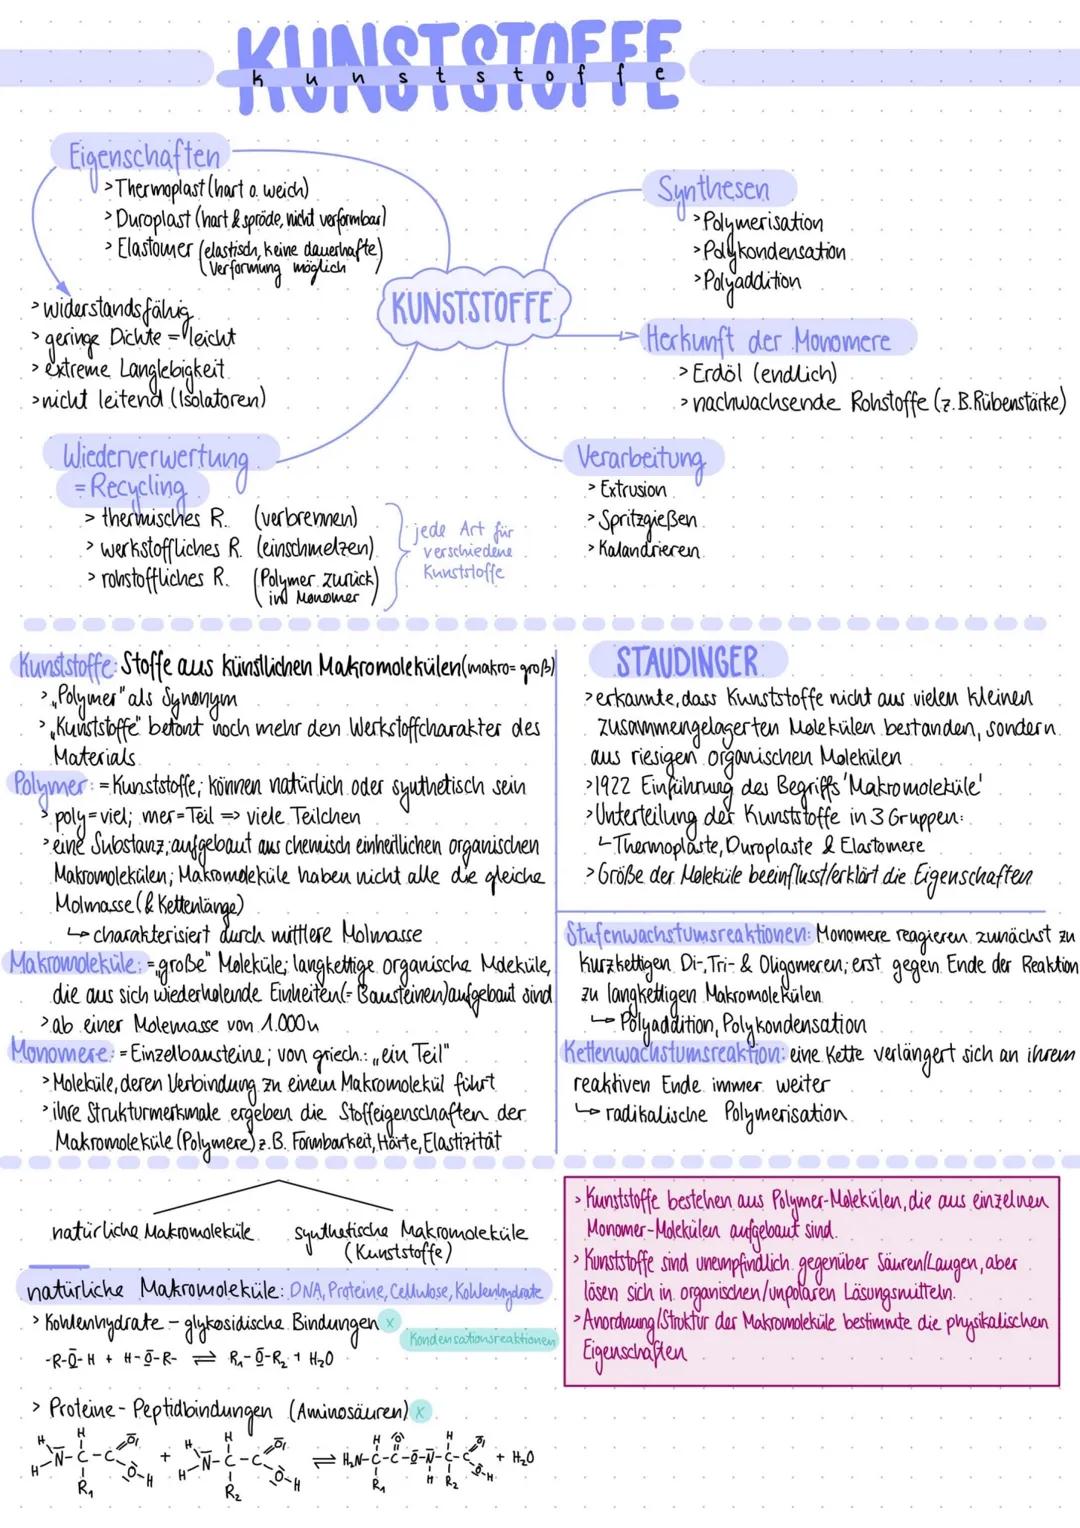 KUNSTSTOFFE
kunststoffe
Eigenschaften
> Thermoplast (hart o. weich)
> Duroplast (hart & spröde, nicht verformbar)
> Elastomer (elastisch, keine dauerhafte
Verformung möglich)
> widerstandsfähig
> geringe Dichte = leicht
> extreme Langlebigkeit
> nicht leitend (Isolatoren)
KUNSTSTOFFE
Synthesen
> Polymerisation
> Polykondensation
> Polyaddition
Herkunft der Monomere
> Erdöl (endlich)
> nachwachsende Rohstoffe (z.B. Rübenstärke)
Wiederverwertung
= Recycling
> thermisches R. (verbrennen)
> werkstoffliches R. (einschmelzen)
> rohstoffliches R. (Polymer zurück
in Monomer)
jede Art für
verschiedene
Kunststoffe
Verarbeitung
> Extrusion
> Spritzgießen
> Kalandrieren
Kunststoffe: Stoffe aus künstlichen Makromolekülen (makro= groß)
> „Polymer" als Synonym
> „Kunststoffe" betont noch mehr den Werkstoffcharakter des
Materials
Polymer: = Kunststoffe; können natürlich oder synthetisch sein
> poly= viel; mer= Teil => viele Teilchen
> eine Substanz, aufgebaut aus chemisch einheitlichen organischen
Makromolekülen; Makromoleküle haben nicht alle die gleiche
Molmasse (& Kettenlänge)
↳ charakterisiert durch mittlere Molmasse
Makromoleküle: = „große" Moleküle; langkettige organische Moleküle,
die aus sich wiederholende Einheiten (= Bausteinen) aufgebaut sind
> ab einer Molemasse von 1.000u
Monomere: = Einzelbausteine; von griech.: „ein Teil"
> Moleküle, deren Verbindung zu einem Makromolekül führt
> ihre Strukturmerkmale ergeben die Stoffeigenschaften der
Makromoleküle (Polymere) z.B. Formbarkeit, Härte, Elastizität
STAUDINGER
> erkannte, dass Kunststoffe nicht aus vielen kleinen
zusammengelagerten Molekülen bestanden, sondern
aus riesigen organischen Molekülen
> 1922 Einführung des Begriffs 'Makromoleküle'
> Unterteilung der Kunststoffe in 3 Gruppen:
↳ Thermoplaste, Duroplaste & Elastomere
> Größe der Moleküle beeinflusst/erklärt die Eigenschaften
Stufenwachstumsreaktionen: Monomere reagieren zunächst zu
kurzkettigen Di-, Tri- & Oligomeren; erst gegen Ende der Reaktion
zu langkettigen Makromolekülen
↳ Polyaddition, Polykondensation
Kettenwachstumsreaktion: eine Kette verlängert sich an ihrem
reaktiven Ende immer weiter
↳ radikalische Polymerisation
natürliche Makromoleküle
synthetische Makromoleküle
(Kunststoffe)
natürliche Makromoleküle: DNA, Proteine, Cellulose, Kohlenhydrate
> Kohlenhydrate - glykosidische Bindungen x
Kondensationsreaktionen
-R-O-H + H-O-R- ⇌ R₁-O-R₂ + H₂O
> Proteine - Peptidbindungen (Aminosäuren) x
H H O H H O H O H O
H-N-C-C + H-N-C-C ⇌ H₂N-C-C-O-N-C-C + H₂O
O-H O-H H O-H
R₁ R₂ R₁ R₂
> Kunststoffe bestehen aus Polymer-Molekülen, die aus einzelnen
Monomer-Molekülen aufgebaut sind.
> Kunststoffe sind unempfindlich gegenüber Säuren/Laugen, aber
lösen sich in organischen/unpolaren Lösungsmitteln.
> Anordnung/Struktur der Makromoleküle bestimmte die physikalischen
Eigenschaften